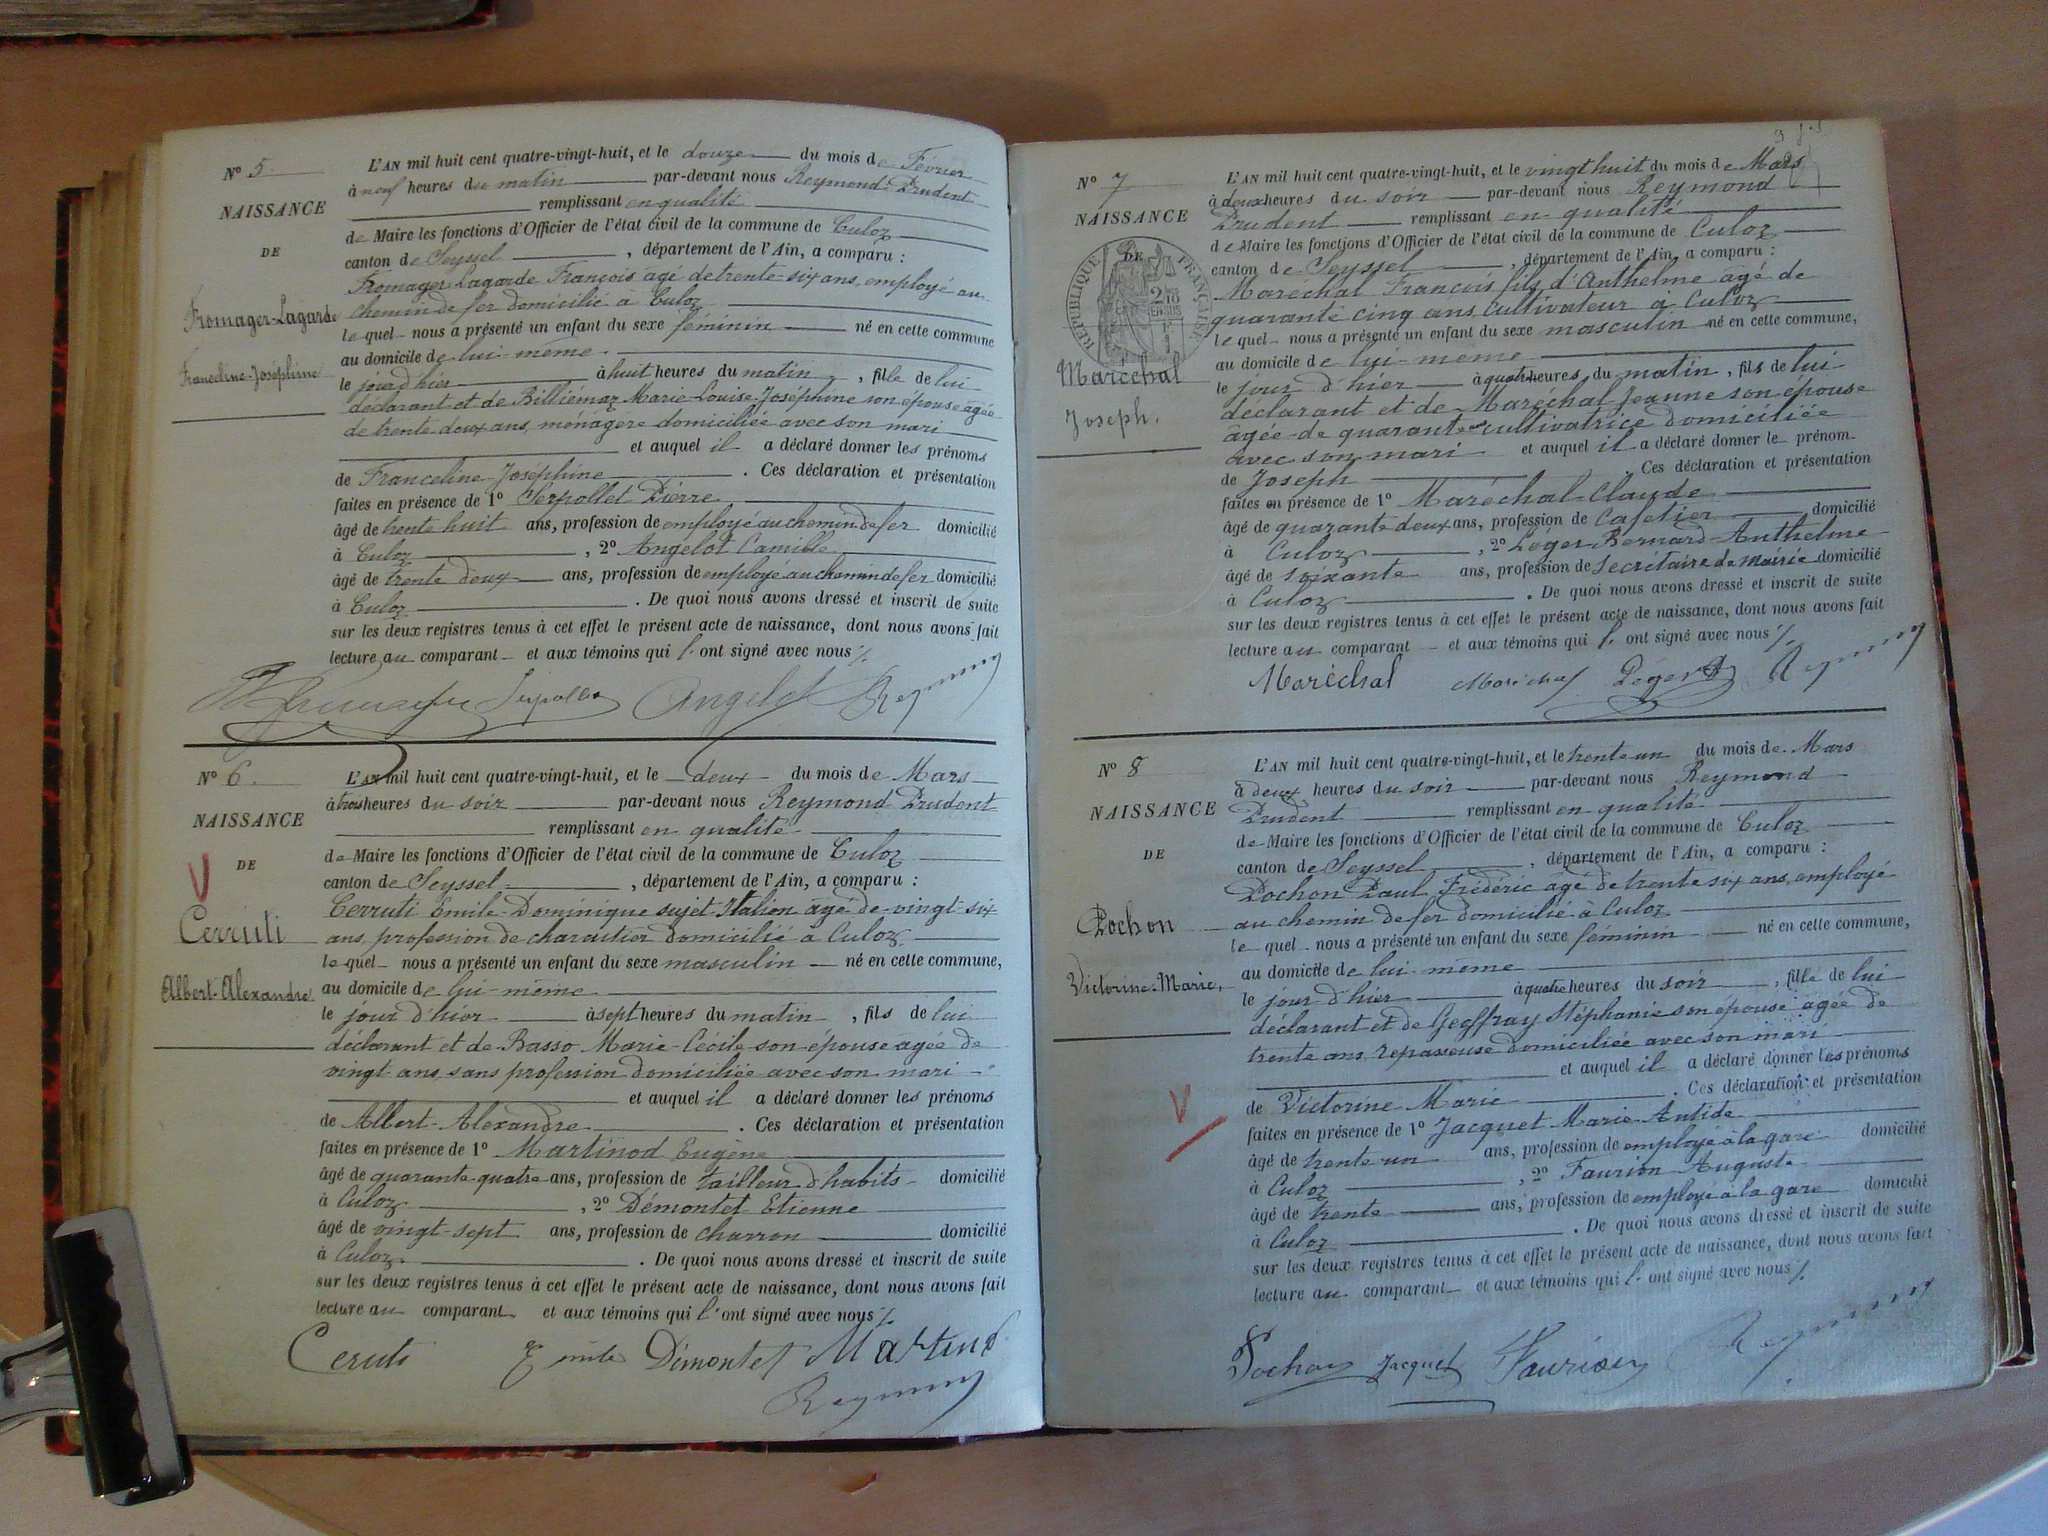 N° 5
NAISSANCE
DE
Fromager-Lagarde
Franceline-Joséphine
L'AN mil huit cent quatre-vingt-huit, et le douze du mois de Février
à neuf heures du matin par-devant nous Reymond Prudent
remplissant en qualité
de Maire les fonctions d'Officier de l'état civil de la commune de Culoz
canton de Seyssel, département de l'Ain, a comparu :
Fromager Lagarde François âgé de trente-six ans, employé au
chemin de fer domicilié à Culoz
le quel nous a présenté un enfant du sexe féminin né en cette commune
au domicile de lui-même
le jour d'hier à huit heures du matin, fille de lui
déclarant et de Billiémaz Marie-Louise-Joséphine son épouse âgée
de trente deux ans, ménagère domiciliée avec son mari
et auquel il a déclaré donner les prénoms
de Franceline Joséphine. Ces déclaration et présentation
faites en présence de 1° Serpollet Pierre
âgé de trente huit ans, profession de employé au chemin de fer domicilié
à Culoz, 2° Angelot Camille
âgé de trente deux ans, profession de employé au chemin de fer domicilié
à Culoz. De quoi nous avons dressé et inscrit de suite
sur les deux registres tenus à cet effet le présent acte de naissance, dont nous avons fait
lecture au comparant et aux témoins qui l'ont signé avec nous ./.
Angelot Reymond
N° 6.
NAISSANCE
DE
V
Cerruti
Albert-Alexandre.
L'AN mil huit cent quatre-vingt-huit, et le deux du mois de Mars
à trois heures du soir par-devant nous Reymond Prudent
remplissant en qualité
de Maire les fonctions d'Officier de l'état civil de la commune de Culoz
canton de Seyssel, département de l'Ain, a comparu :
Cerruti Emile-Dominique sujet Italien âgé de vingt-six
ans, profession de charcutier domicilié à Culoz.
le quel nous a présenté un enfant du sexe masculin né en cette commune,
au domicile de lui-même
le jour d'hier à sept heures du matin, fils de lui
déclarant et de Basso Marie-Cécile son épouse agée de
vingt ans, sans profession domiciliée avec son mari
et auquel il a déclaré donner les prénoms
de Albert-Alexandre. Ces déclaration et présentation
faites en présence de 1° Martinod Eugène
âgé de quarante quatre ans, profession de tailleur d'habits domicilié
à Culoz, 2° Démontet Etienne
âgé de vingt-sept ans, profession de charron domicilié
à Culoz. De quoi nous avons dressé et inscrit de suite
sur les deux registres tenus à cet effet le présent acte de naissance, dont nous avons fait
lecture au comparant et aux témoins qui l'ont signé avec nous ./.
Ceruti Emile Démontet Martinod
Reymond
N° 7
NAISSANCE
DE
RÉPUBLIQUE FRANÇAISE
Maréchal
Joseph.
L'AN mil huit cent quatre-vingt-huit, et le vingt huit du mois de Mars
à deux heures du soir par-devant nous Reymond
Prudent remplissant en qualité
de Maire les fonctions d'Officier de l'état civil de la commune de Culoz
canton de Seyssel, département de l'Ain, a comparu :
Maréchal François fils d'Anthelme âgé de
quarante cinq ans, Cultivateur à Culoz
le quel nous a présenté un enfant du sexe masculin né en cette commune,
au domicile de lui-même
le jour d'hier à quatre heures du matin, fils de lui
déclarant et de Maréchal Jeanne son épouse
âgée de quarante ans cultivatrice domiciliée
avec son mari et auquel il a déclaré donner le prénom
de Joseph. Ces déclaration et présentation
faites en présence de 1° Maréchal Claude
âgé de quarante deux ans, profession de Cafetier domicilié
à Culoz, 2° Léger Bernard-Anthelme
âgé de soixante ans, profession de secrétaire de mairie domicilié
à Culoz. De quoi nous avons dressé et inscrit de suite
sur les deux registres tenus à cet effet le présent acte de naissance, dont nous avons fait
lecture au comparant et aux témoins qui l'ont signé avec nous ./.
Maréchal Maréchal Léger B Reymond
N° 8
NAISSANCE
DE
Pochon
Victorine-Marie.
V
L'AN mil huit cent quatre-vingt-huit, et le trente un du mois de Mars
à deux heures du soir par-devant nous Reymond
Prudent remplissant en qualité
de Maire les fonctions d'Officier de l'état civil de la commune de Culoz
canton de Seyssel, département de l'Ain, a comparu :
Pochon Paul Frédéric âgé de trente six ans, employé
au chemin de fer domicilié à Culoz
le quel nous a présenté un enfant du sexe féminin né en cette commune,
au domicile de lui-même
le jour d'hier à quatre heures du soir, fille de lui
déclarant et de Geoffray Stéphanie son épouse âgée de
trente ans repasseuse domiciliée avec son mari
et auquel il a déclaré donner les prénoms
de Victorine Marie. Ces déclaration et présentation
faites en présence de 1° Jacquet Marie-Antide
âgé de trente un ans, profession de employé à la gare domicilié
à Culoz, 2° Faurion Auguste
âgé de trente ans, profession de employé à la gare domicilié
à Culoz. De quoi nous avons dressé et inscrit de suite
sur les deux registres tenus à cet effet le présent acte de naissance, dont nous avons fait
lecture au comparant et aux témoins qui l'ont signé avec nous ./.
Pochon Jacquet Faurion Reymond